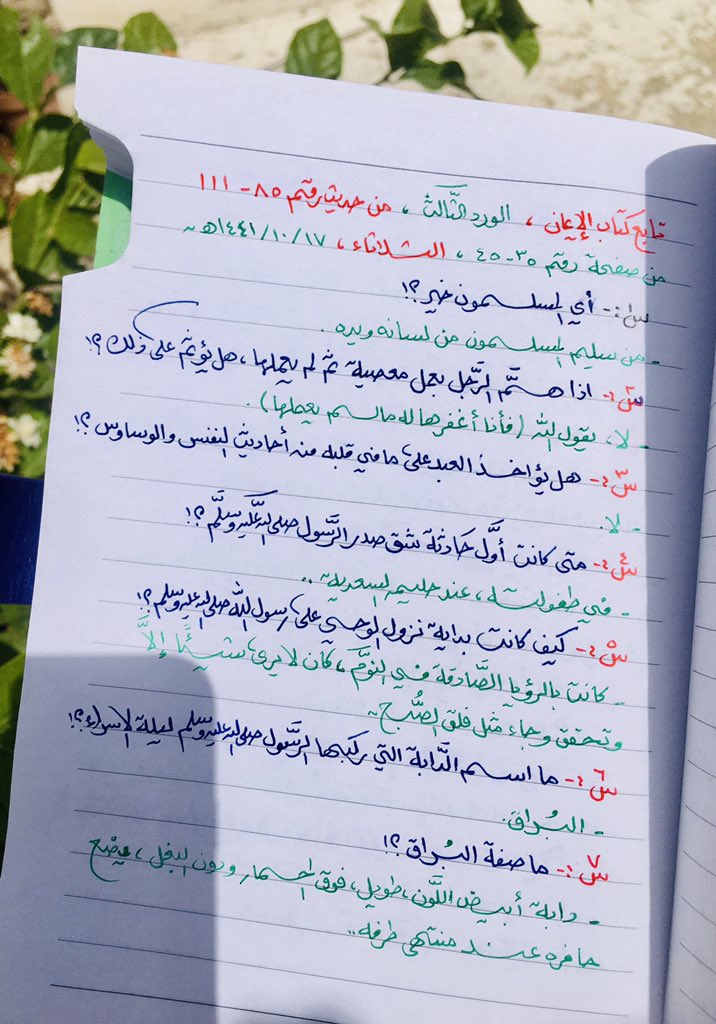 تابع كتاب الإيمان ، الورد الثَّالث ، من حديث رقم ٨٥ - ١١١
من صفحة رقم ٣٥ - ٤٥ ، الثلاثاء ، ١٤٤١/١٠/١٧هـ ~
س١:- أي المسلمون خير؟!
- من سليم المسلمون من لسانه ويده .
س٢:- اذا همَّ الرَّجل بعمل معصية ثم لم يعملها ، هل يؤثم على ذلك؟!
- لا، يقول الله (فأنا أغفرها له مالم يعملها) .
س٣:- هل يؤاخذ العبد على ما في قلبه من أحاديث النفس والوساوس؟!
- لا.
س٤:- متى كانت أوَّل حادثة شق صدر الرَّسول صلى الله عليه وسلَّم ؟!
- في طفولته ، عند حليمه السعدية ..
س٥:- كيف كانت بداية نزول الوحي على رسول الله صلى الله عليه وسلم؟!
- كانت بالرؤيا الصَّادقة في النوم ، كان لا يرى شيئًا إلاَّ
وتحقق وجاء مثل فلق الصُّبح ~
س٦:- ما اسم الدَّابة التي ركبها الرَّسول صلى الله عليه وسلم ليلة الاسراء؟!
- البُراق.
س٧:- ما صفة البُراق ؟!
- دابة أبيض اللَّون ، طويل ، فوق الحمار ودون البغل ، يضع
حافره عند منتهى طرفه ..